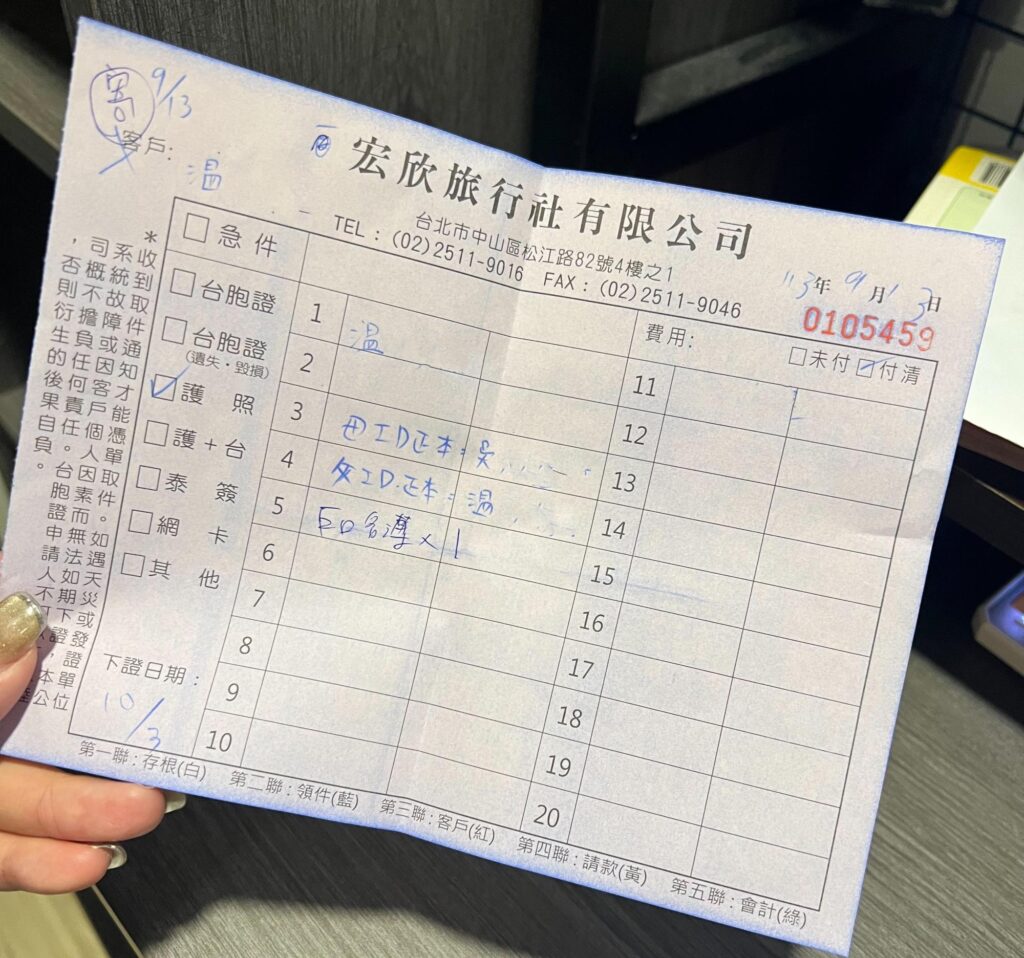 9/13
客戶:
温
宏欣旅行社有限公司
台北市中山區松江路82號4樓之1
TEL : (02)2511-9016 FAX : (02)2511-9046
113年 9月13日
0105459
費用: □未付 ☑付清
□急件
□台胞證
□台胞證
(遺失・毀損)
☑護照
□護+台
□泰簽
□網卡
□其他
下證日期:
10/3
1 温
2
3 ID正本:吳
4 ID正本:温
5 ×1
6
7
8
9
10
11
12
13
14
15
16
17
18
19
20
*收到取件通知才能憑單取件。如遇天災或
系統故障或因客戶個人因素而無法如期下證
司概不擔負任何責任。台胞證申請人不
,否則衍生的後果自負。
第一聯:存根(白) 第二聯:領件(藍) 第三聯:客戶(紅) 第四聯:請款(黃) 第五聯:會計(綠)